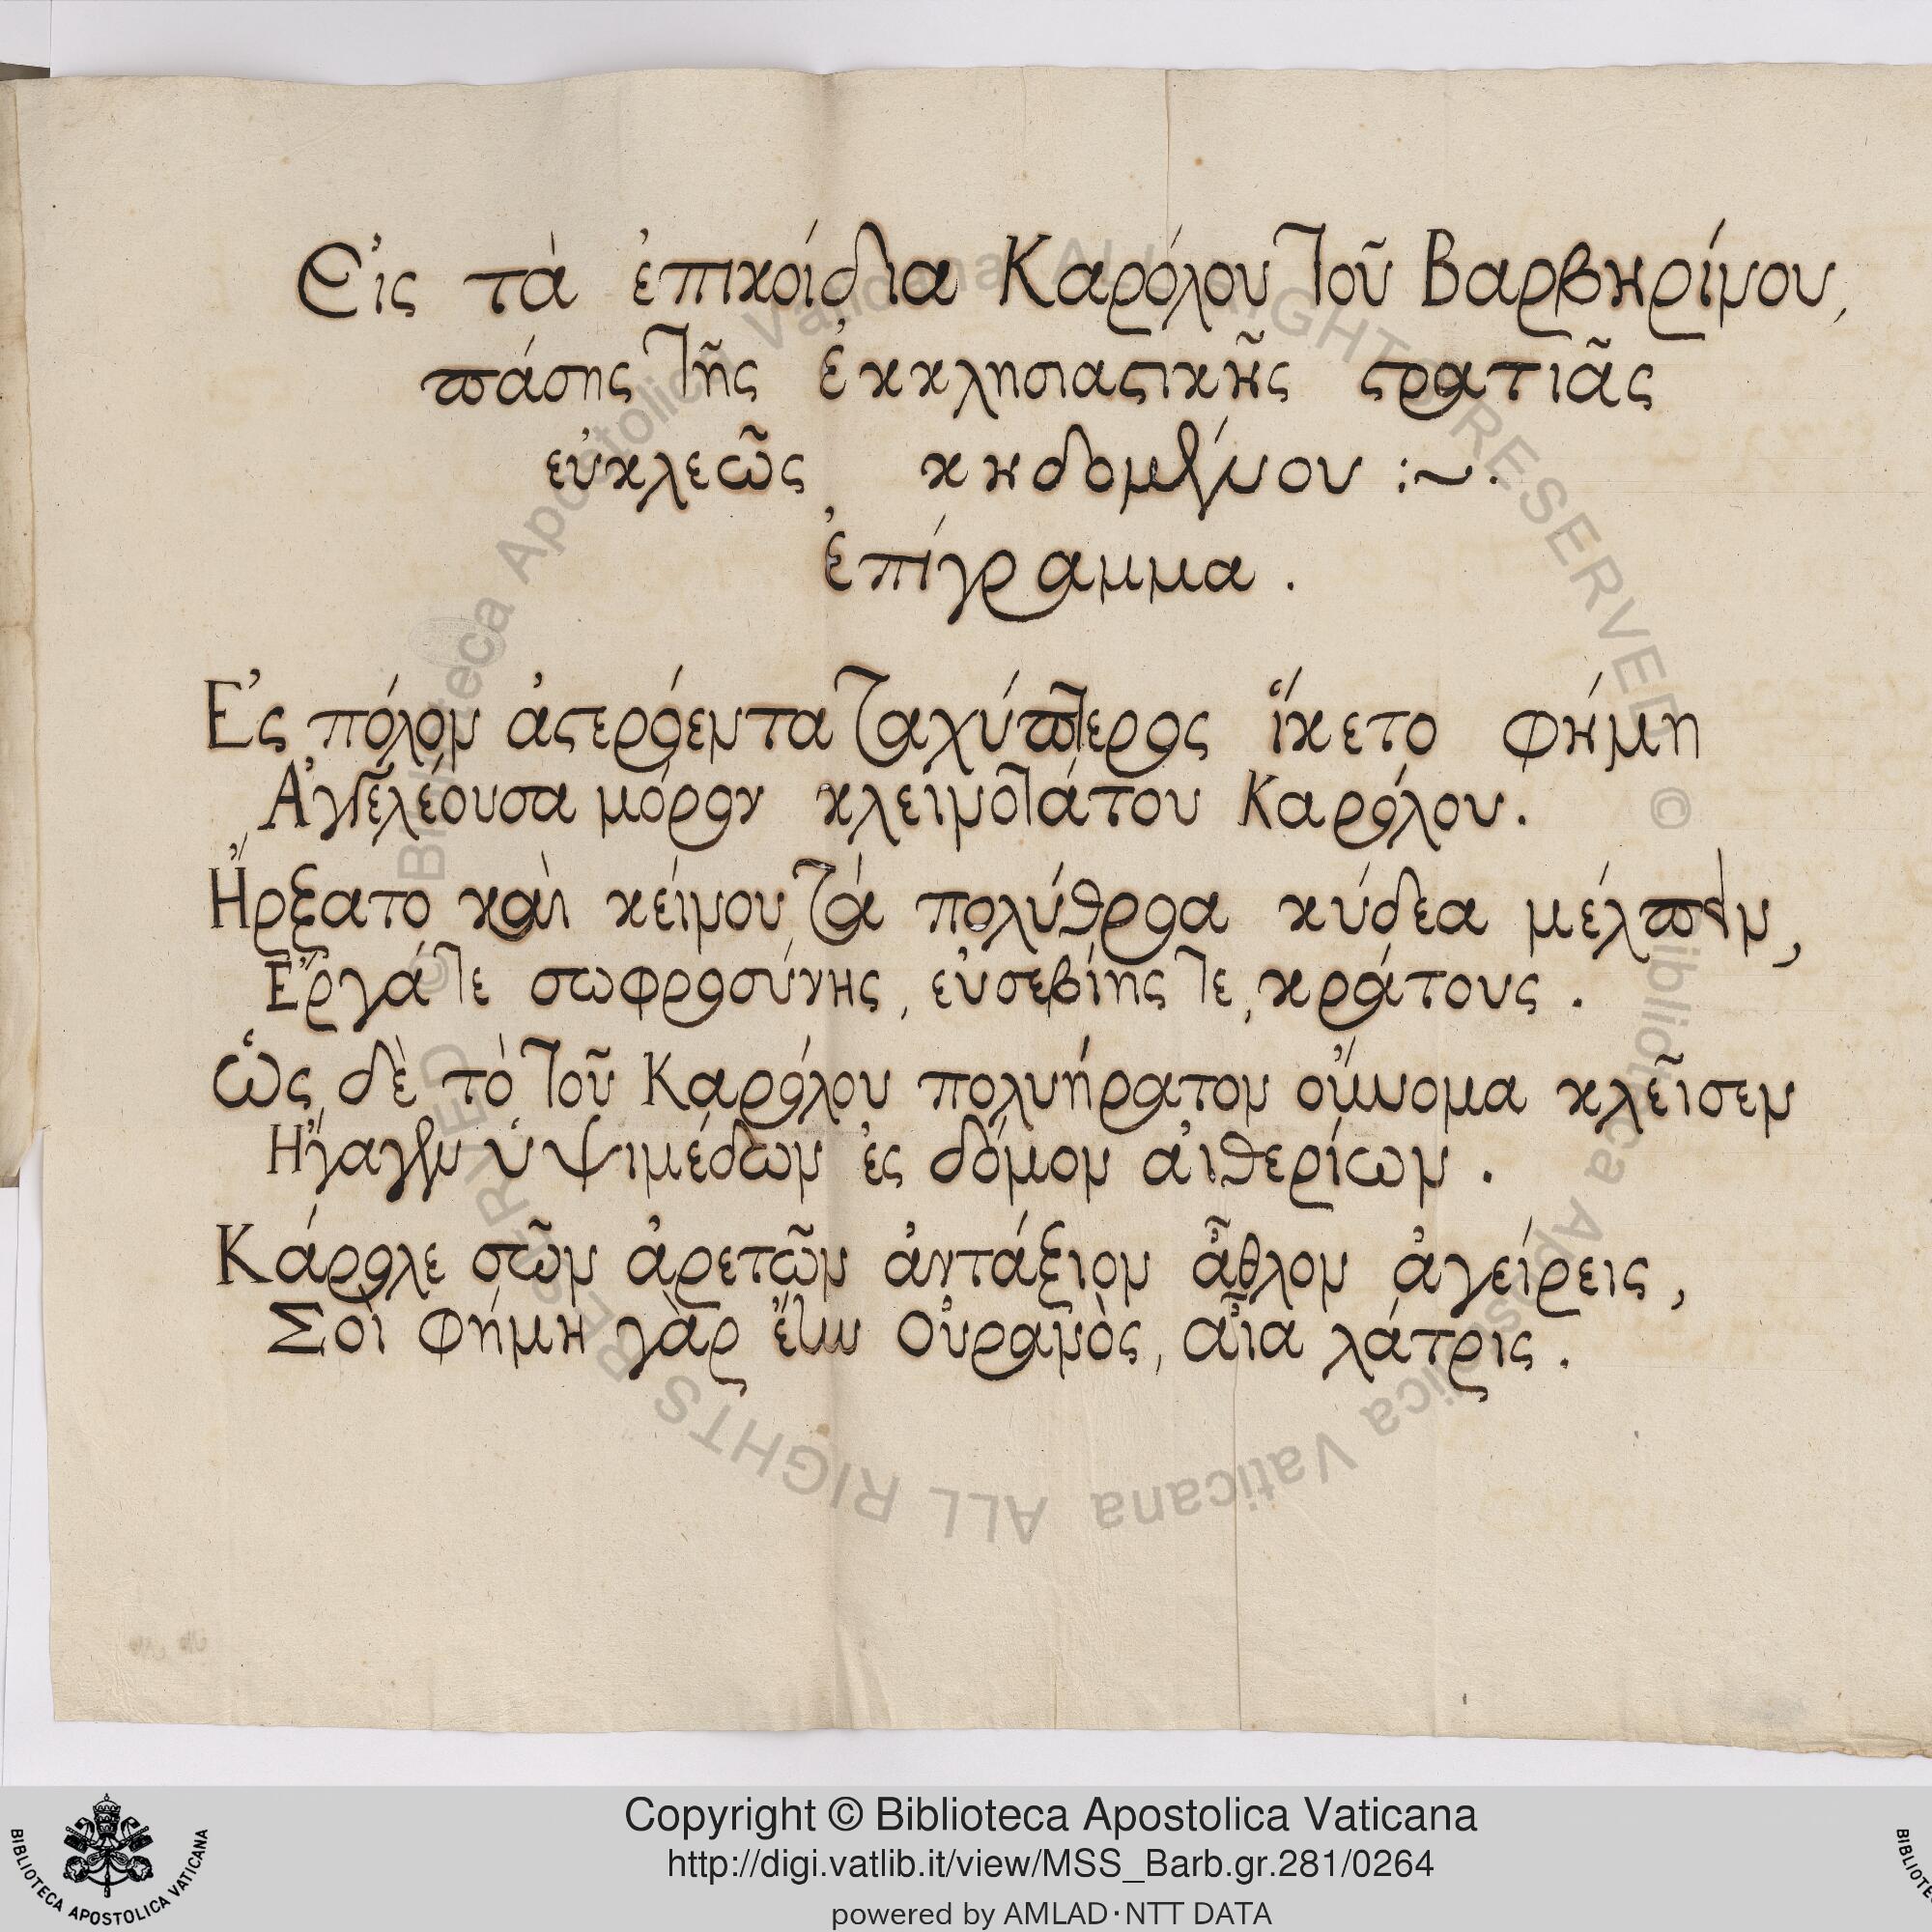 Εἰς τὰ ἐπικοίδια Καρόλου τοῦ Βαρβηρίνου,
πάσης τῆς ἐκκλησιαστικῆς στρατιᾶς
εὐκλεῶς κηδομένου :~.
ἐπίγραμμα.
Ἐς πόλον ἀστερόεντα ταχύπτερος ἵκετο φήμη
Ἀγγελέουσα μόρον κλεινοτάτου Καρόλου.
Ἤρξατο καὶ κείνου τά πολύθροα κύδεα μέλπειν,
Ἔργά τε σωφροσύνης, εὐσεβίης τε, κράτους.
Ὡς δὲ τὸ τοῦ Καρόλου πολυήρατον οὔνομα κλεῖσεν
Ἤγαγεν ὑψιμέδων ἐς δόμον αἰθερίων.
Κάρολε σῶν ἀρετῶν ἀντάξιον ἆθλον ἀγείρεις,
Σοὶ φήμη γὰρ ἔην Οὐρανὸς, αἶα λάτρις.
Copyright © Biblioteca Apostolica Vaticana
http://digi.vatlib.it/view/MSS_Barb.gr.281/0264
powered by AMLAD·NTT DATA
BIBLIOTECA APOSTOLICA VATICANA